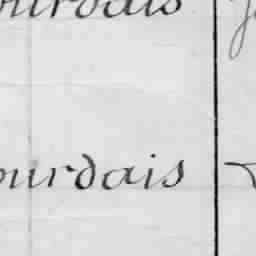 ourdais
ourdais